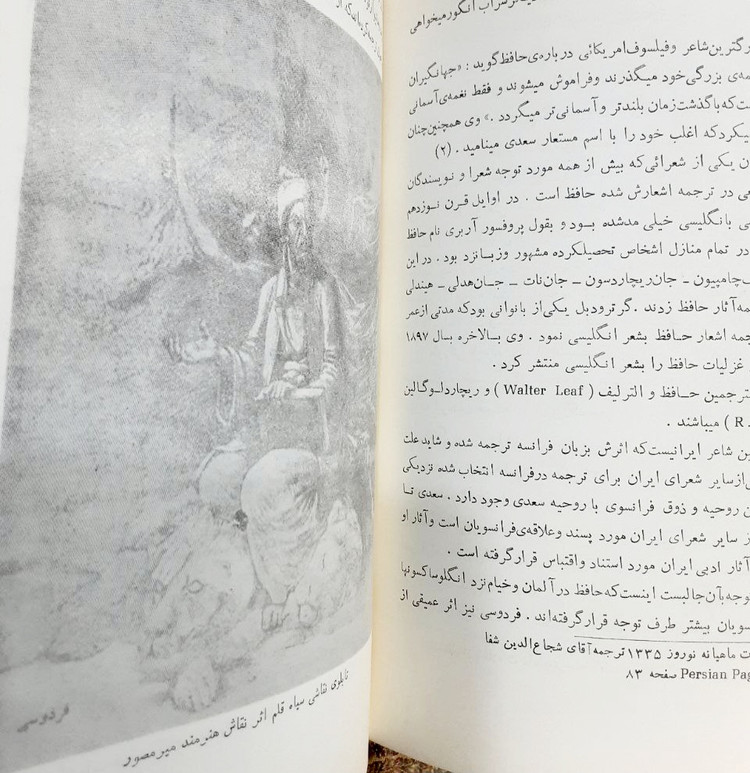 شراب انگور میخواهی
شاعر وفیلسوف امریکائی درباره‌ی حافظ گوید : «جهانگیران
بزرگی خود میگذرند وفراموش میشوند و فقط نغمه‌ی آسمانی
که باگذشت زمان بلندتر و آسمانی‌تر میگردد .» وی همچنین چنان
که اغلب خود را با اسم مستعار سعدی مینامید . (۲)
یکی از شعرائی که بیش از همه مورد توجه شعرا و نویسندگان
در ترجمه اشعارش شده حافظ است . در اوایل قرن نوزدهم
بانگلیسی خیلی مدشده بود و بقول پروفسور آربری نام حافظ
در تمام منازل اشخاص تحصیلکرده مشهور وزبانزد بود . در این
چامپیون ـ جان ریچاردسون ـ جان نات ـ جان هدلی ـ هیندلی
آثار حافظ زدند . گرترودبل یکی از بانوانی بود که مدتی ازعمر
اشعار حافظ بشعر انگلیسی نمود . وی بالاخره بسال ۱۸۹۷
غزلیات حافظ را بشعر انگلیسی منتشر کرد .
مترجمین حافظ و الترلیف ( Walter Leaf ) و ریچارد لوگالین
R ) میباشند .
شاعر ایرانیست که اثرش بزبان فرانسه ترجمه شده و شاید علت
ازسایر شعرای ایران برای ترجمه درفرانسه انتخاب شده نزدیکی
روحیه و ذوق فرانسوی با روحیه سعدی وجود دارد . سعدی تا
سایر شعرای ایران مورد پسند وعلاقه‌ی فرانسویان است وآثار او
آثار ادبی ایران مورد استناد واقتباس قرارگرفته است .
جالبست اینست که حافظ در آلمان وخیام نزد انگلوساکسونها
بیشتر طرف توجه قرارگرفته‌اند . فردوسی نیز اثر عمیقی از
ماهیانه نوروز ۱۳۳۵ ترجمه آقای شجاع‌الدین شفا
Persian Pag صفحه ۸۳
فردوسی
تابلوی نقاشی سیاه قلم اثر نقاش هنرمند میرمصور